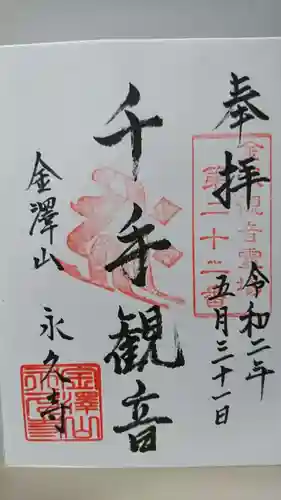 奉拝
令和二年
五月三十一日
千手観音
金澤山
永久寺
第二十二番
金澤山